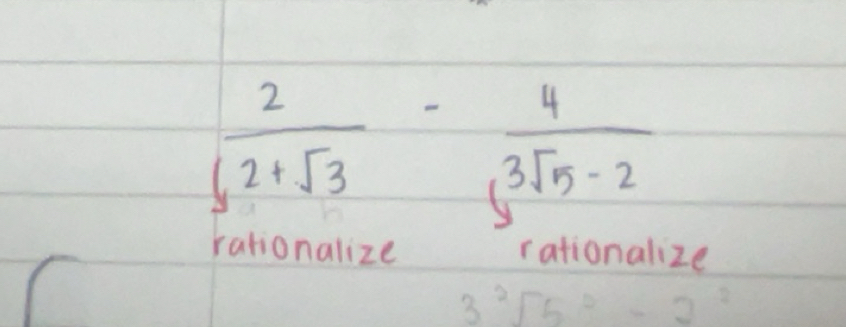 2 - 4
2 + √3 3√5 - 2
a b
rationalize rationalize
3²√5² - 2²